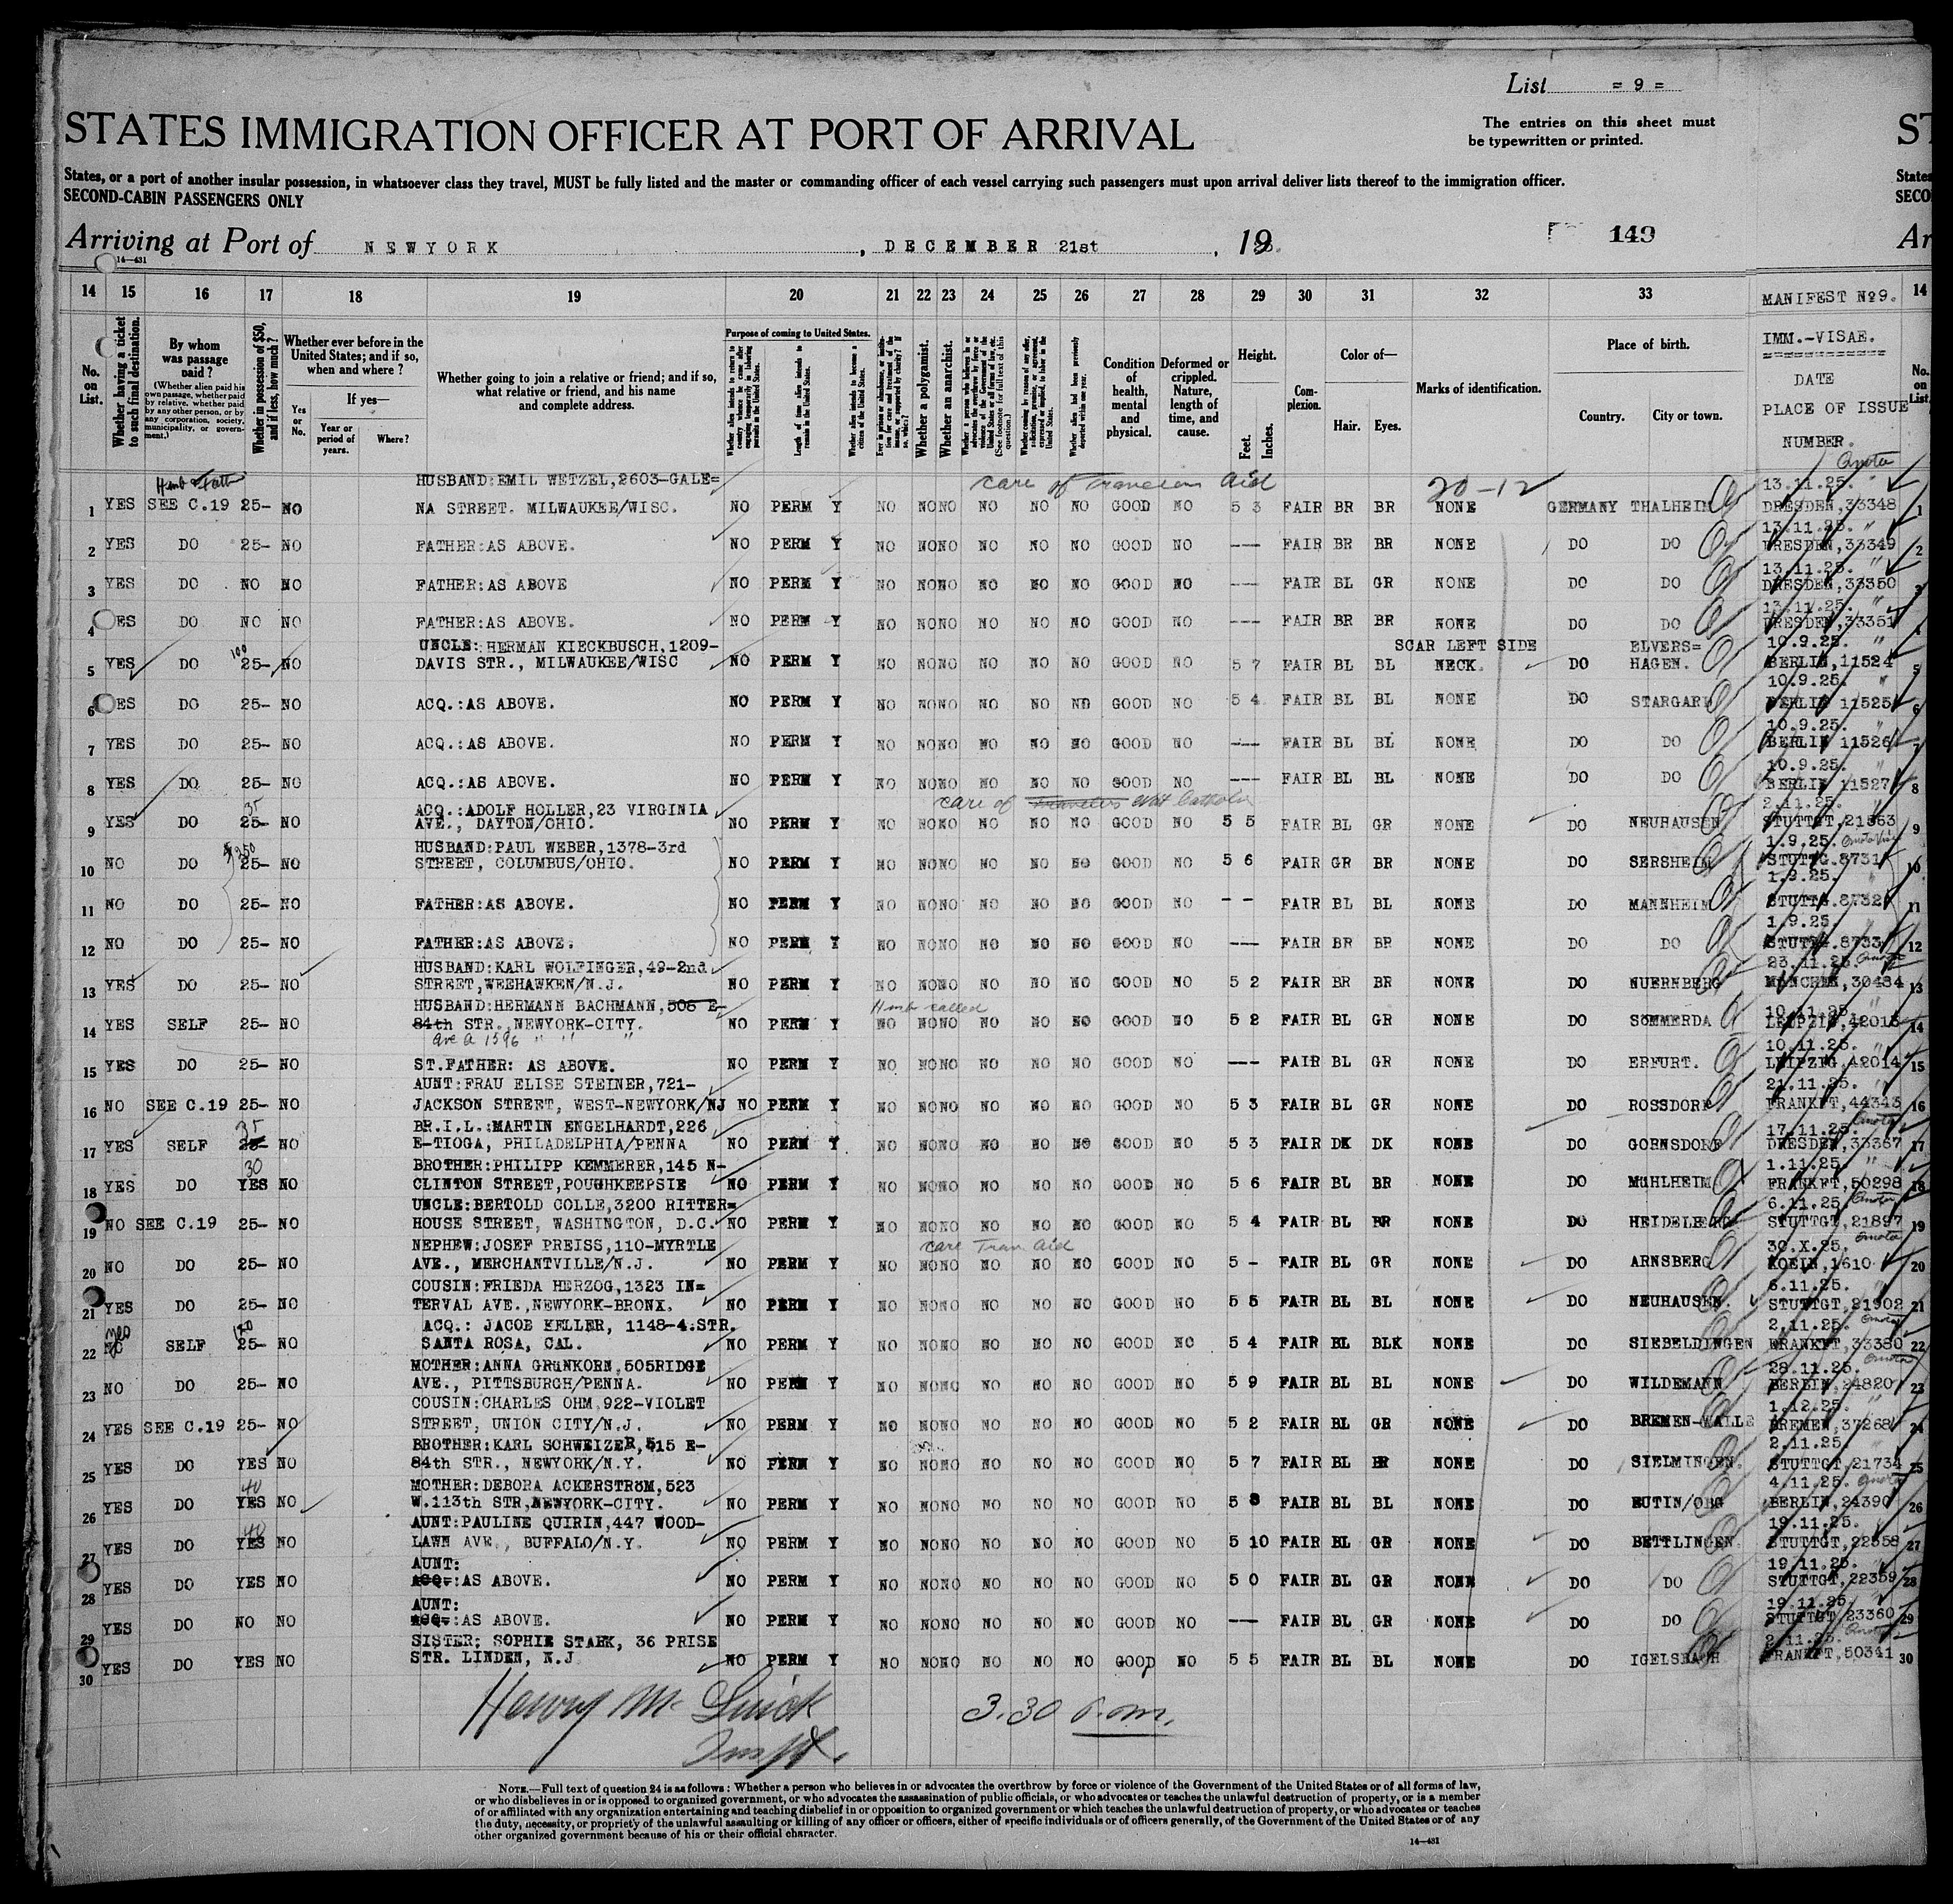 List = 9 =
STATES IMMIGRATION OFFICER AT PORT OF ARRIVAL
The entries on this sheet must
be typewritten or printed.
States, or a port of another insular possession, in whatsoever class they travel, MUST be fully listed and the master or commanding officer of each vessel carrying such passengers must upon arrival deliver lists thereof to the immigration officer.
SECOND-CABIN PASSENGERS ONLY
Arriving at Port of NEWYORK, DECEMBER 21st, 19
149
14—431
14 15 16 17 18 19 20 21 22 23 24 25 26 27 28 29 30 31 32 33 MANIFEST Nº9. 14
No. on List.
Whether having a ticket to such final destination.
By whom was passage paid?
(Whether alien paid his own passage, whether paid by relative, whether paid by any other person, or by any corporation, society, municipality, or government.)
Whether in possession of $50, and if less, how much?
Whether ever before in the United States; and if so, when and where?
Yes or No.
If yes—
Year or period of years.
Where?
Whether going to join a relative or friend; and if so, what relative or friend, and his name and complete address.
Purpose of coming to United States.
Length of time alien intends to remain in the United States.
Whether alien intends to become a citizen of the United States.
Whether a polygamist.
Whether an anarchist.
Condition of health, mental and physical.
Deformed or crippled. Nature, length of time, and cause.
Height.
Feet. Inches.
Complexion.
Color of—
Hair. Eyes.
Marks of identification.
Place of birth.
Country. City or town.
IMM.-VISAE.
DATE
PLACE OF ISSUE
NUMBER.
HUSBAND:EMIL WETZEL,2603-GALE= care of Travelers Aid 20-12 13.11.25.
1 YES SEE C.19 25- NO NA STREET. MILWAUKEE/WISC. NO PERM Y NO NO NO NO NO NO GOOD NO 5 3 FAIR BR BR NONE GERMANY THALHEIM DRESDEN,33348 1
13.11.25.
2 YES DO 25- NO FATHER:AS ABOVE. NO PERM Y NO NO NO NO NO NO GOOD NO --- FAIR BR BR NONE DO DO DRESDEN,33349 2
13.11.25.
3 YES DO NO NO FATHER:AS ABOVE NO PERM Y NO NO NO NO NO NO GOOD NO --- FAIR BL GR NONE DO DO DRESDEN,33350 3
13.11.25.
4 YES DO NO NO FATHER:AS ABOVE. NO PERM Y NO NO NO NO NO NO GOOD NO --- FAIR BR BR NONE DO DO DRESDEN,33351 4
100 UNCLE:HERMAN KIECKBUSCH,1209- SCAR LEFT SIDE ELVERS= 10.9.25.
5 YES DO 25- NO DAVIS STR., MILWAUKEE/WISC NO PERM Y NO NO NO NO NO NO GOOD NO 5 7 FAIR BL BL NECK. DO HAGEN. BERLIN,11524 5
10.9.25.
6 YES DO 25- NO ACQ.:AS ABOVE. NO PERM Y NO NO NO NO NO NO GOOD NO 5 4 FAIR BL BL NONE DO STARGARD BERLIN 11525 6
10.9.25.
7 YES DO 25- NO ACQ.:AS ABOVE. NO PERM Y NO NO NO NO NO NO GOOD NO --- FAIR BL BL NONE DO DO BERLIN 11526 7
10.9.25.
8 YES DO 25- NO ACQ.:AS ABOVE. NO PERM Y NO NO NO NO NO NO GOOD NO --- FAIR BL BL NONE DO DO BERLIN 11527 8
35 ACQ.:ADOLF HOLLER,23 VIRGINIA care of Travelers Catholic 2.11.25.
9 YES DO 25- NO AVE., DAYTON/OHIO. NO PERM Y NO NO NO NO NO NO GOOD NO 5 5 FAIR BL GR NONE DO NEUHAUSEN STUTTGT,21863 9
$350 HUSBAND:PAUL WEBER,1378-3rd 1.9.25.
10 NO DO 25- NO STREET, COLUMBUS/OHIO. NO PERM Y NO NO NO NO NO NO GOOD NO 5 6 FAIR GR BR NONE DO SERSHEIM STUTTG.8731 10
1.9.25.
11 NO DO 25- NO FATHER:AS ABOVE. NO PERM Y NO NO NO NO NO NO GOOD NO -- FAIR BL BL NONE DO MANNHEIM STUTTG.8732 11
1.9.25.
12 NO DO 25- NO FATHER:AS ABOVE. NO PERM Y NO NO NO NO NO NO GOOD NO --- FAIR BR BR NONE DO DO STUTTG.8733 12
HUSBAND:KARL WOLFINGER,49-2nd 23.11.25.
13 YES DO 25- NO STREET,WEEHAWKEN/N.J. NO PERM Y NO NO NO NO NO NO GOOD NO 5 2 FAIR BR BR NONE DO NUERNBERG MÜNCHEN,30484 13
HUSBAND:HERMANN BACHMANN,505 E- Husb called 10.11.25.
14 YES SELF 25- NO 84th STR.,NEWYORK-CITY. NO PERM Y NO NO NO NO NO NO GOOD NO 5 2 FAIR BL GR NONE DO SÖMMERDA LEIPZIG,42013 14
Ave A 1596 " " " 10.11.25.
15 YES DO 25- NO ST.FATHER: AS ABOVE. NO PERM Y NO NO NO NO NO NO GOOD NO --- FAIR BL GR NONE DO ERFURT. LEIPZIG,42014 15
AUNT:FRAU ELISE STEINER,721- 21.11.25.
16 NO SEE C.19 25- NO JACKSON STREET, WEST-NEWYORK/NJ NO PERM Y NO NO NO NO NO NO GOOD NO 5 3 FAIR BL GR NONE DO ROSSDORF FRANKFT,44343 16
35 BR.I.L.:MARTIN ENGELHARDT,226 17.11.25.
17 YES SELF 25- NO E-TIOGA, PHILADELPHIA/PENNA NO PERM Y NO NO NO NO NO NO GOOD NO 5 3 FAIR DK DK NONE DO GORNSDORF DRESDEN,33367 17
30 BROTHER:PHILIPP KEMMERER,145 N- 1.11.25.
18 YES DO YES NO CLINTON STREET,POUGHKEEPSIE NO PERM Y NO NO NO NO NO NO GOOD NO 5 6 FAIR BL BR NONE DO MÜHLHEIM FRANKFT,50298 18
UNCLE:BERTOLD COLLE,3200 RITTER= 6.11.25.
19 NO SEE C.19 25- NO HOUSE STREET, WASHINGTON, D.C. NO PERM Y NO NO NO NO NO NO GOOD NO 5 4 FAIR BL BR NONE DO HEIDELBERG STUTTGT,21897 19
NEPHEW:JOSEF PREISS,110-MYRTLE care Trav Aid 30.X.25.
20 NO DO 25- NO AVE., MERCHANTVILLE/N.J. NO PERM Y NO NO NO NO NO NO GOOD NO 5 - FAIR BL GR NONE DO ARNSBERG KOELN,1610 20
COUSIN:FRIEDA HERZOG,1323 IN= 6.11.25.
21 YES DO 25- NO TERVAL AVE.,NEWYORK-BRONX. NO PERM Y NO NO NO NO NO NO GOOD NO 5 5 FAIR BL BL NONE DO NEUHAUSEN. STUTTGT,21902 21
yes ACQ.: JACOB KELLER, 1148-4.STR. 2.11.25.
22 NO SELF 25- NO SANTA ROSA, CAL. NO PERM Y NO NO NO NO NO NO GOOD NO 5 4 FAIR BL BLK NONE DO SIEBELDINGEN FRANKFT,33380 22
MOTHER:ANNA GRÜNKORN,505RIDGE 28.11.25.
23 NO DO 25- NO AVE., PITTSBURGH/PENNA. NO PERM Y NO NO NO NO NO NO GOOD NO 5 9 FAIR BL BL NONE DO WILDEMANN BERLIN,24820 23
COUSIN:CHARLES OHM,922-VIOLET 1.12.25.
24 YES SEE C.19 25- NO STREET, UNION CITY/N.J. NO PERM Y NO NO NO NO NO NO GOOD NO 5 2 FAIR BL GR NONE DO BREMEN-WALLE BREMEN,37268 24
BROTHER:KARL SCHWEIZER,515 E- 2.11.25.
25 YES DO YES NO 84th STR., NEWYORK/N.Y. NO PERM Y NO NO NO NO NO NO GOOD NO 5 7 FAIR BL BR NONE DO SIELMINGEN. STUTTGT,21734 25
40 MOTHER:DEBORA ACKERSTRÖM,523 4.11.25.
26 YES DO YES NO W.113th STR,NEWYORK-CITY. NO PERM Y NO NO NO NO NO NO GOOD NO 5 8 FAIR BL BL NONE DO EUTIN/OBG BERLIN,24390 26
40 AUNT:PAULINE QUIRIN,447 WOOD- 19.11.25.
27 YES DO YES NO LAWN AVE., BUFFALO/N.Y. NO PERM Y NO NO NO NO NO NO GOOD NO 5 10 FAIR BL GR NONE DO BETTLINGEN. STUTTGT,22358 27
AUNT: 19.11.25.
28 YES DO YES NO ACQ.:AS ABOVE. NO PERM Y NO NO NO NO NO NO GOOD NO 5 0 FAIR BL GR NONE DO DO STUTTGT,22359 28
AUNT: 19.11.25.
29 YES DO NO NO ACQ.:AS ABOVE. NO PERM Y NO NO NO NO NO NO GOOD NO --- FAIR BL GR NONE DO DO STUTTGT,23360 29
SISTER: SOPHIE STARK, 36 PRISE 2.11.25.
30 YES DO YES NO STR. LINDEN, N.J NO PERM Y NO NO NO NO NO NO GOOD NO 5 5 FAIR BL BL NONE DO IGELSBACH FRANKFT,50341 30
Henry M 3.30 p.m.
Inspt.
NOTE.—Full text of question 24 is as follows: Whether a person who believes in or advocates the overthrow by force or violence of the Government of the United States or of all forms of law,
or who disbelieves in or is opposed to organized government, or who advocates the assassination of public officials, or who advocates or teaches the unlawful destruction of property, or is a member
of or affiliated with any organization entertaining and teaching disbelief in or opposition to organized government or which teaches the unlawful destruction of property, or who advocates or teaches
the duty, necessity, or propriety of the unlawful assaulting or killing of any officer or officers, either of specific individuals or of officers generally, of the Government of the United States or of any
other organized government because of his or their official character.
14—431